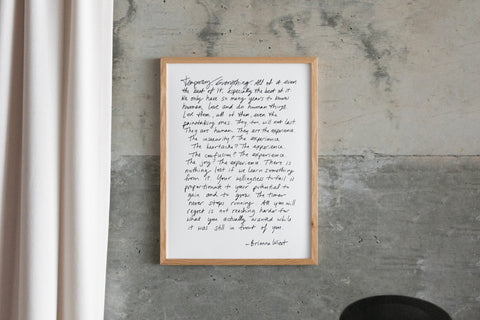 Temporary Everything. All of it even
the best of it. Especially the best of it.
We only have so many years to know
humans, love and do human things.
Love them, all of them, even the
painstaking ones. They too will not last.
They are human. They are the experience.
The insecurity? The experience.
The heartache? The experience.
The confusion? The experience.
The joy? The experience. There is
nothing lost if we learn something
from it. Your willingness to fail is
proportionate to your potential to
gain and to grow. The timer
never stops running. All you will
regret is not reaching harder for
what you actually wanted while
it was still in front of you.
- Brianna Wiest